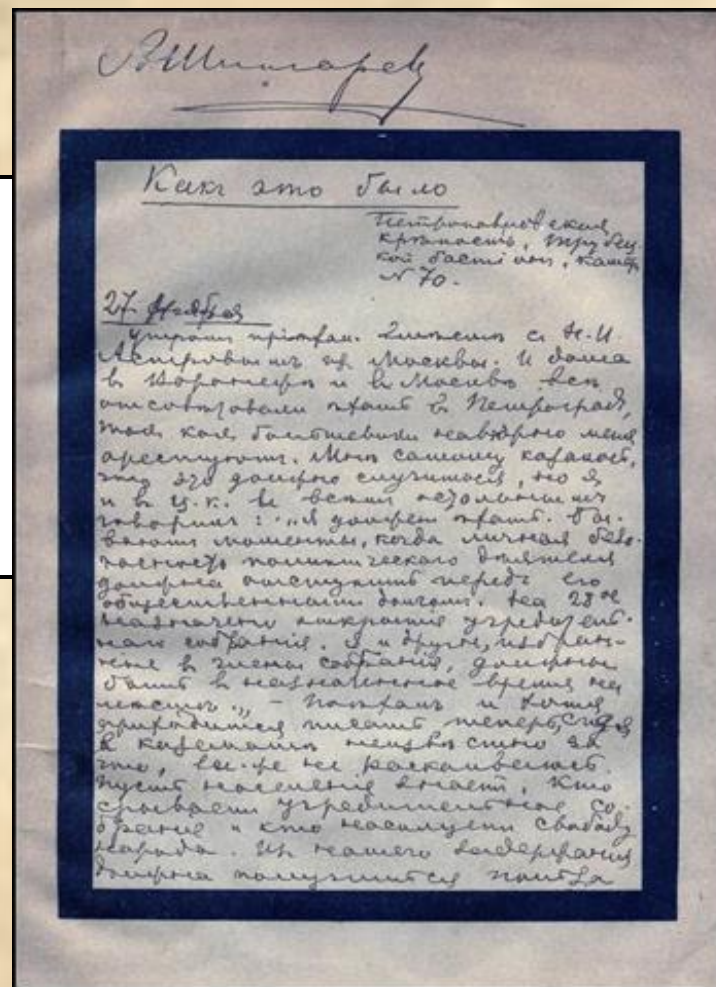 АШингарев
Какъ это было
Петропавловская
крѣпость, Трубец-
кой бастіонъ, камера
N 70.
27 Ноября
Утром пріѣхал. Вмѣстѣ с Н.И.
Астровым из Москвы. И дома
в Воронежѣ и в Москвѣ всѣ
отсовѣтовали ѣхать в Петроград,
так как большевики навѣрно меня
арестуют. Мнѣ самому казалось,
что это должно случиться, но я
и в Ц.К. и всѣм остальным
говорил: „я должен ѣхать. Бы-
вают моменты, когда личная безо-
пасность политического дѣятеля
должна отступить перед его
общественным долгом. На 28ое
назначено открытие учредитель-
наго собрания. Я и другие, избран-
ные в члены собрания, должны
быть в назначенное время на
мѣстѣ„ – Поѣхал и хотя
приходится писать теперь, сидя
в казематѣ неизвѣстно за
что, все-же не раскаиваюсь.
Пусть население знает, кто
срывает учредительное со-
брание и кто насилует свободу
народа. Из нашего задержания
должна получиться польза